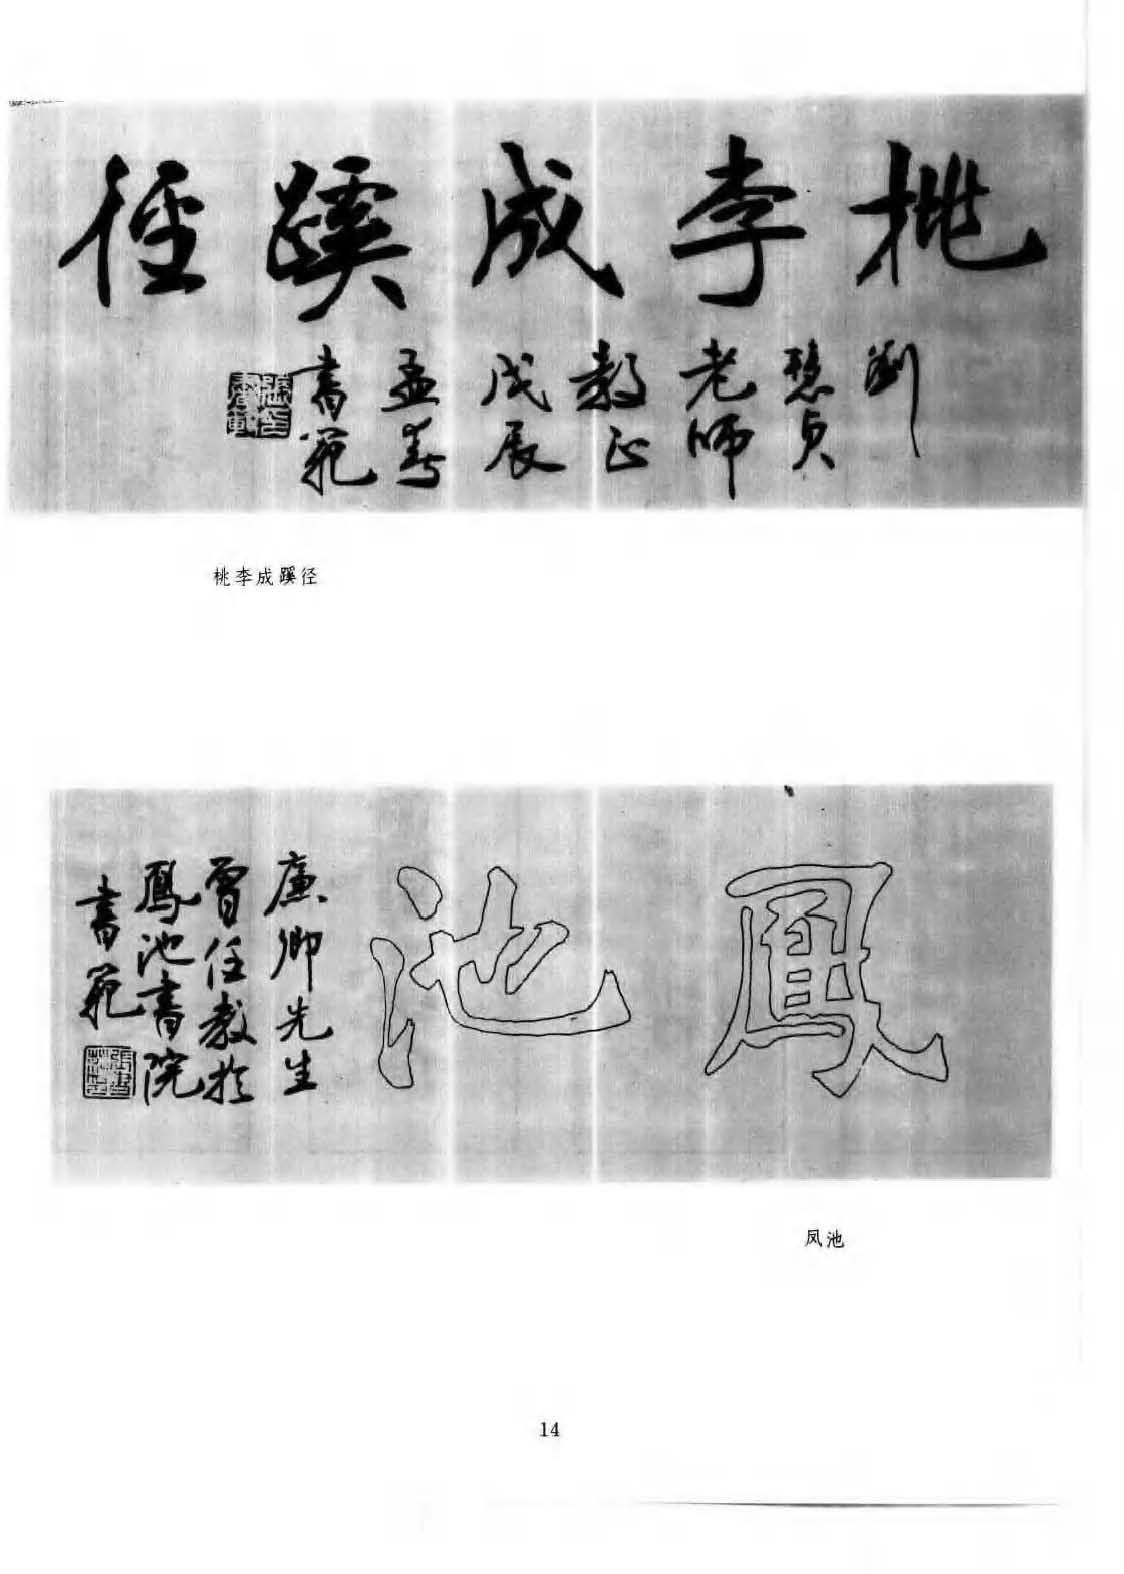 桃李成蹊徑
劉
慧貞
老師
教正
戊辰
孟春
書範
桃李成蹊径
鳳池
廉卿先生
曾任教於
鳳池書院
書範
凤池
14